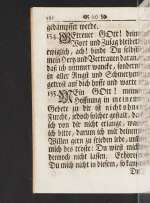 282 20
gedämpffet werde.
154. GEtreuer GOtt! dein
Wort und Zusag bleibet
ewiglich, ach! binde Du selbst
mein Herz und Vertrauen daran,
daß ich nimmer wancke, sondern
in aller Angst und Schmertzen
getrost an dich hoffe und warte.
155. MEin GOtt! meine
Hoffnung in meinem
Gebet zu dir ist nicht ohne
Furcht, jedoch solcher gestalt, daß
ich von dir nicht erlange, was
ich bitte, damit ich mit deinem
Willen gern zu frieden sey, und
mich des tröste: Du wirst mich
dennoch nicht lassen. Erhörest
Du mich nicht in diesem, so kanst
Du